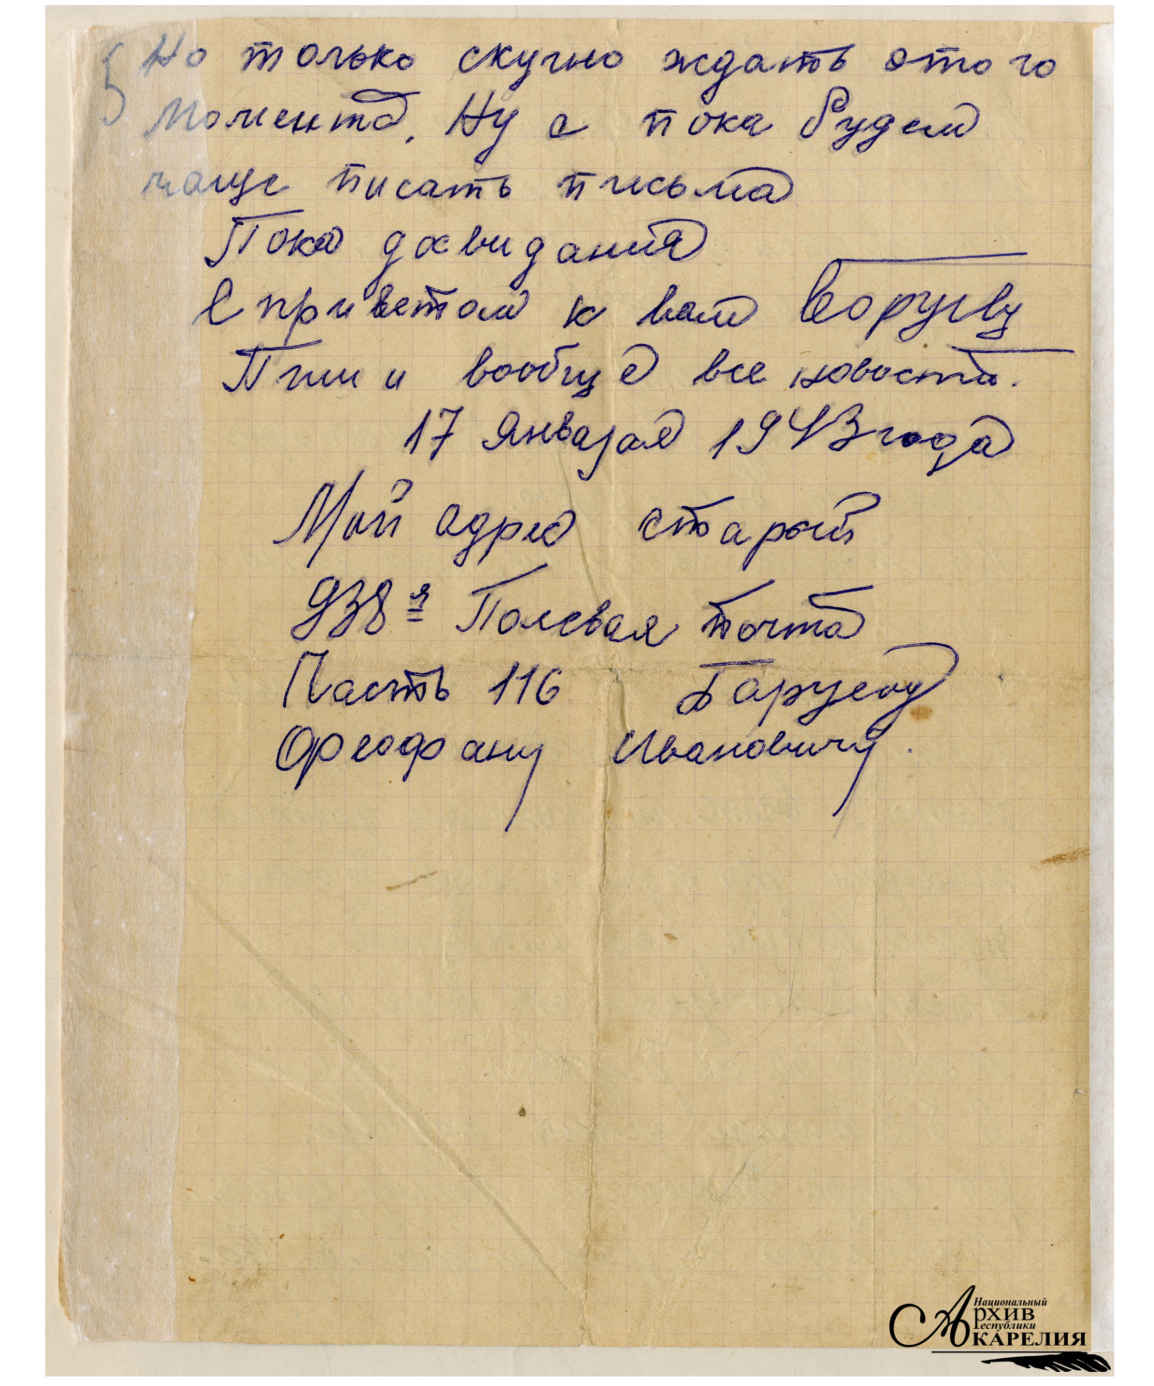 Но только скучно ждать этого
момента. Ну а пока будем
чаще писать письма
Пока досвидания
С приветом к вам
Пиши вообще все новости.
17 января 1943 года
Мой адрес старый
938я Полевая почта
Часть 116
Феофану Ивановичу.
Национальный
Архив
Республики
Карелия